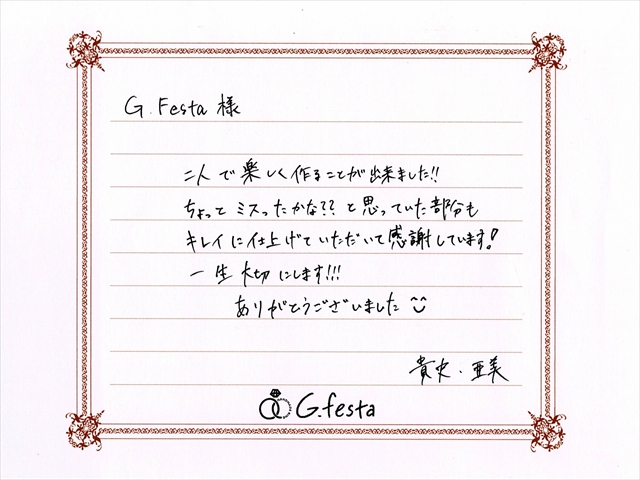 G.Festa 様
二人で楽しく作ることが出来ました!!
ちょっとミスったかな??と思っていた部分も
キレイに仕上げていただいて感謝しています!
一生大切にします!!!
ありがとうございました^^
貴史・亜美
G.festa